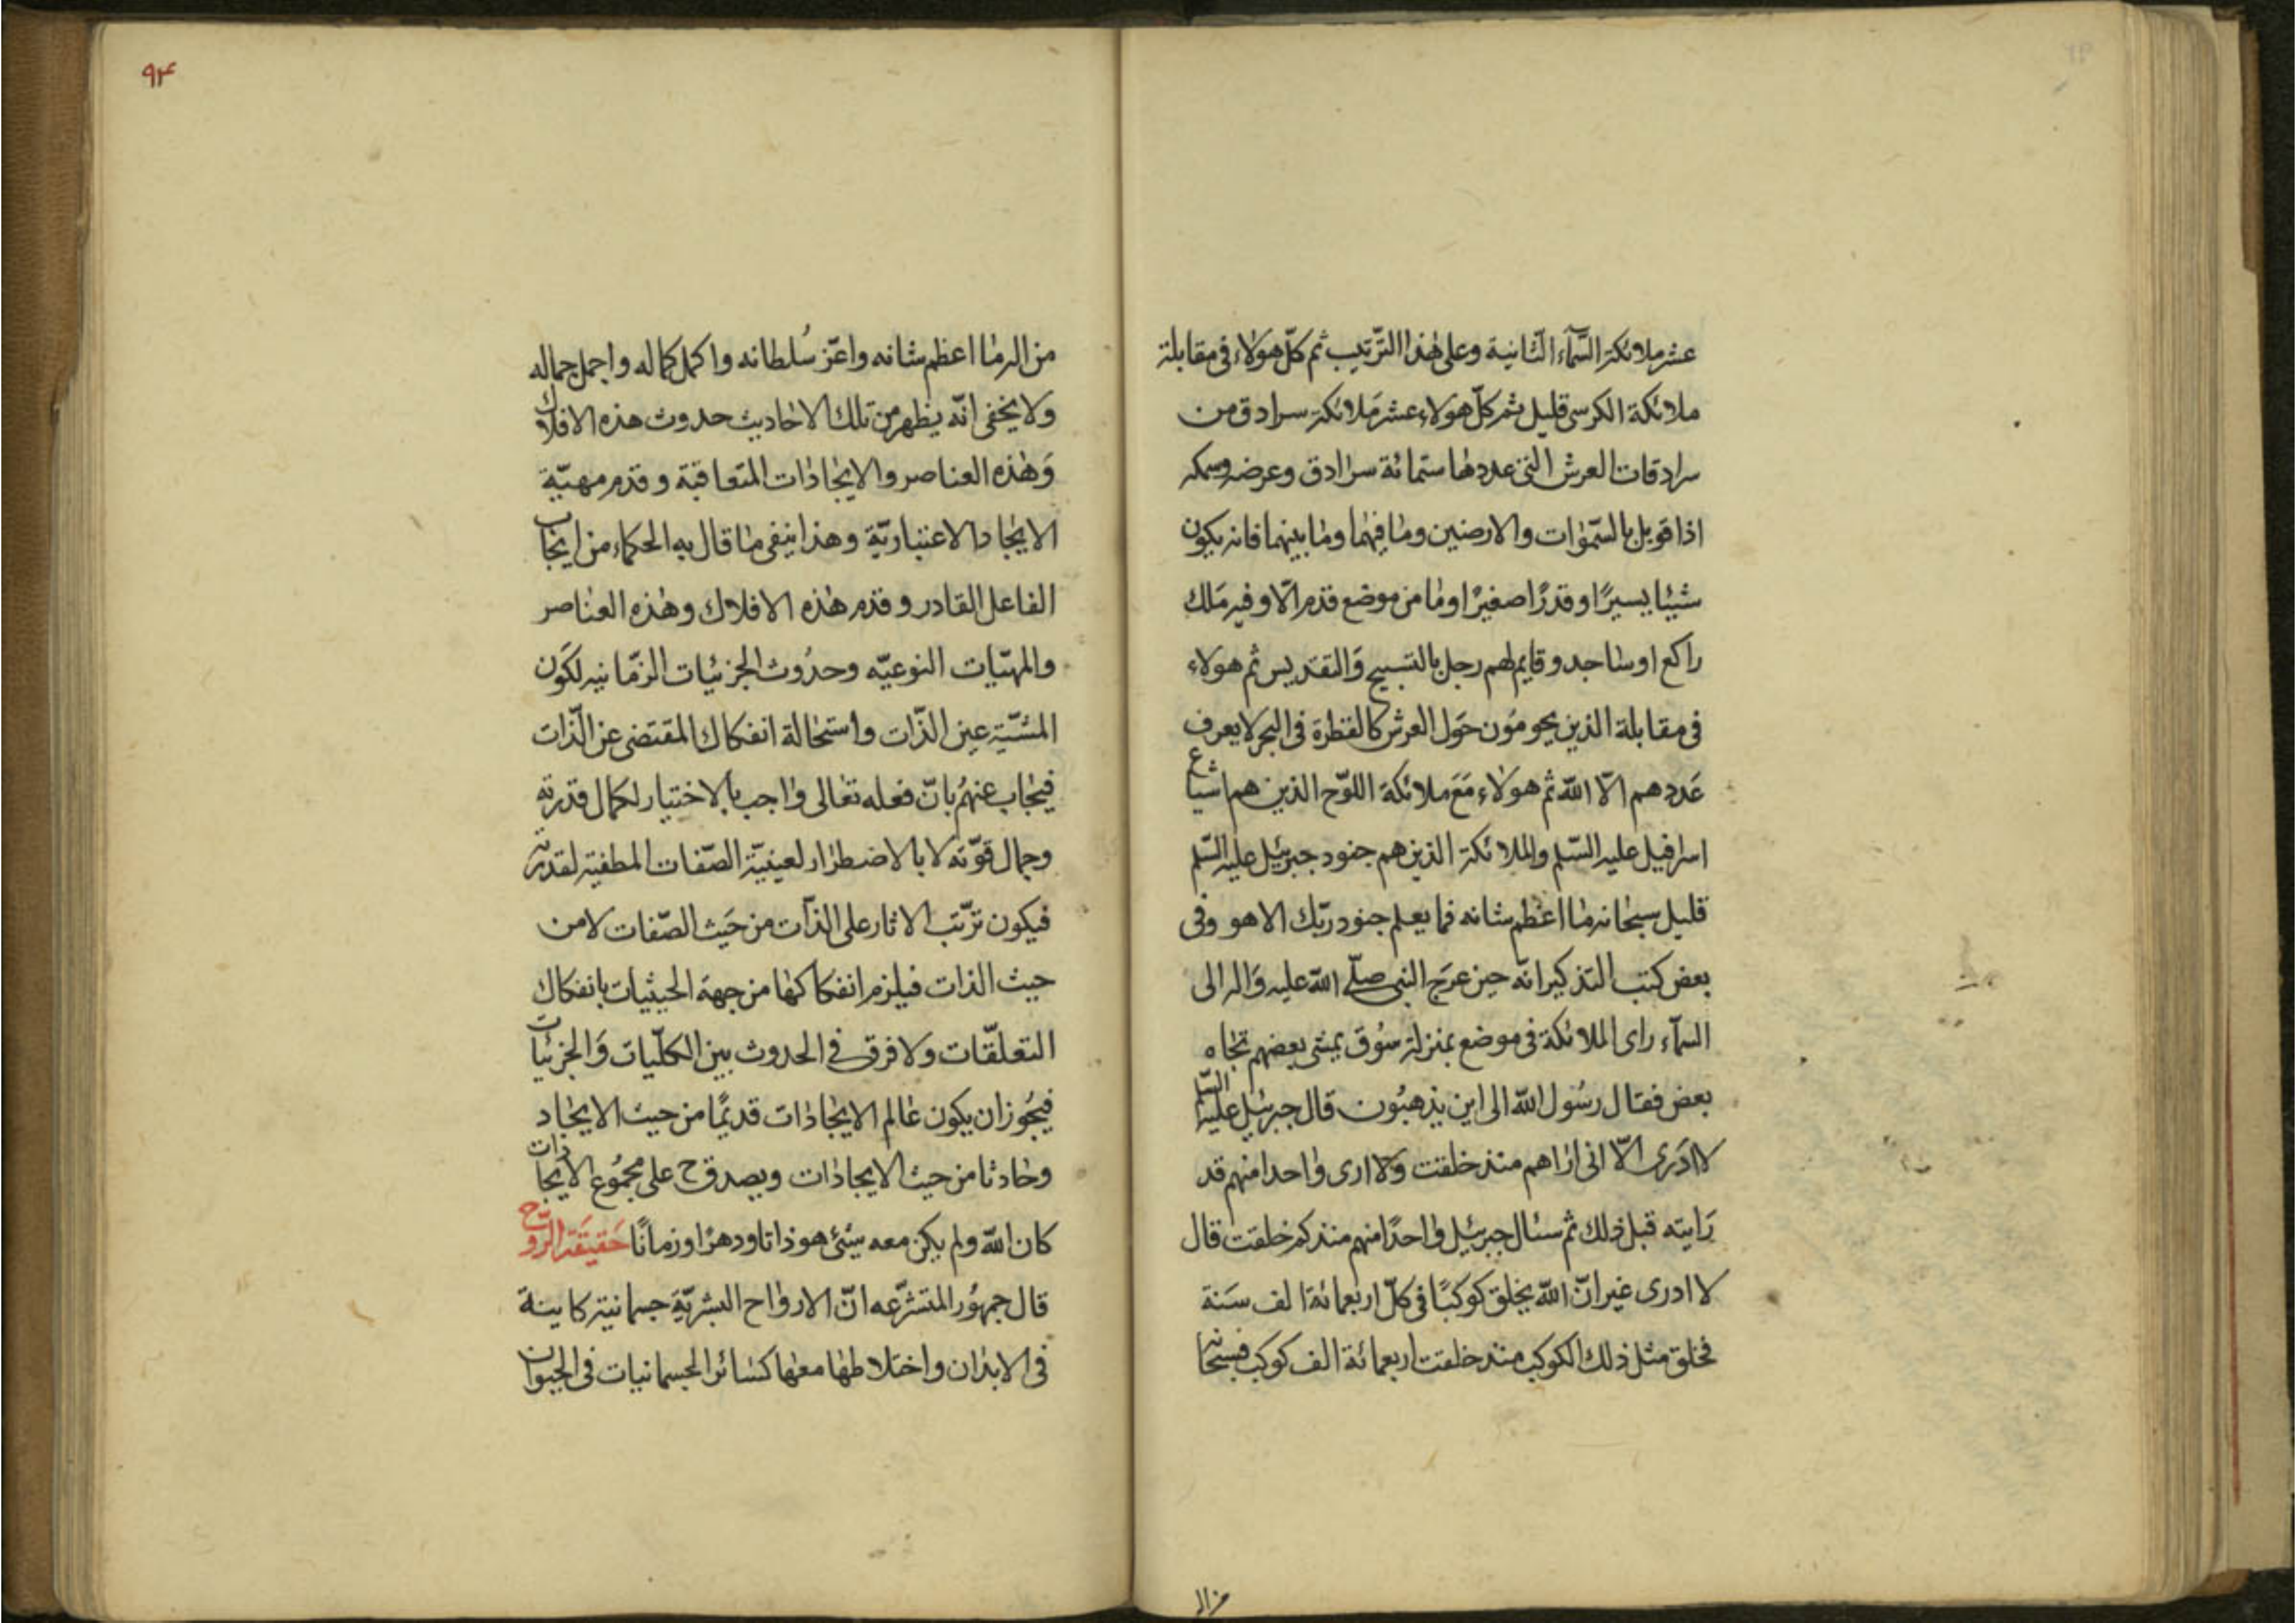 عشر ملائكة السّمآء الثّانية وعلى هٰذا الترّتيب ثم كلّ هولاء فى مقابلة
ملائكة الكرسى قليل ثم كلّ هولاء عشر مَلائكة سرادق من
سرادقات العرش التى عددها ستمائة سرادق وعرضه وسمكه
اذا قوبل بالسّموٰات والارضين وما فيهما وما بينهما فانه يكون
شيئا يسيرًا وقدرًا صغيرًا وما من موضع قدم الّا وفيه مَلك
راكع او ساجد وقايم لهم رجل بالتسبيح وَالتقديس ثم هولاء
فى مقابلة الذين يحومُون حَول العرش كالقطرة فى البحر لا يعرف
عَددهم الّا الله ثم هولاء مَعَ ملائكة اللوّح الذين هم اشياع
اسرافيل عليه السّلم والملائكة الذين هم جنود جبرئيل عليه السّلم
قليل سبحانه ما اعظم شانه فما يعلم جنود ربّك الا هو وفى
بعض كتب التذكير انّه حين عرَج النبى صلّى الله عليه وَاله الى
السمآء راى الملائكة فى موضع بمنزلة سُوق يمشى بعضهم تجاه
بعض فقال رسُول الله الى اين يذهبُون قال جبرئيل عليه السّلم
لا ادَرى الّا انى اراهم منذ خلقت وَلا ارى واحدا منهم قد
رَايته قبل ذلك ثم سئال جبرئيل واحدًا منهم منذ كم خلقت قال
لا ادرى غير انّ الله يخلق كوكبًا فى كلّ اربعمائة الف سَنة
فخلق مثل ذلك الكوكب منذ خلقت اربعمائة الف كوكب فسبحانه
من اله
٩٤
من اله ما اعظم شانه واعّز سُلطانه واكمل كماله واجمل جماله
ولا يخفى انّه يظهر من تلك الاحاديث حدوث هذه الافلاك
وَهٰذه العناصر والايجادات المتعاقبة وقدم مهيّة
الايجاد الاعتباريّة وهذا ينفى ما قال به الحكماء من ايجاب
الفاعل القادر وقدم هٰذه الافلاك وهٰذه العناصر
والمهيّات النوعيّه وحدُوث الجزئيات الزمّانيه لكَون
المشيّة عين الذّات واستحالة انفكاك المقتضى عن الذّات
فيجاب عنهُم بانّ فعله تعالى واجب بالاختيار لكمال قدرته
وجمال قوّته لا بالاضطرار لعينيّة الصّفات لقدرته
فيكون ترّتب الاثار على الذآت من حَيث الصّفات لا من
حيث الذات فيلزم انفكاكها من جهة الحيثيات بانفكاك
التعلّقات ولا فرق فى الحدوث بين الكلّيات وَالجزئيات
فيجُوز ان يكون عالم الايجادات قديمًا من حيث الايجاد
وحادثا من حيث الايجادات ويصدق ح على مجمُوع الايجادات
كان الله ولم يكن معه شئ هو ذاتا ودهرًا وزمانًا حَقيقَة الرّوح
قال جمهُور المتشرّعه انّ الارواح البشريّة جسمانية كاينة
فى الابدان واختلاطها معها كسائر الجسمانيات فى الحيوان